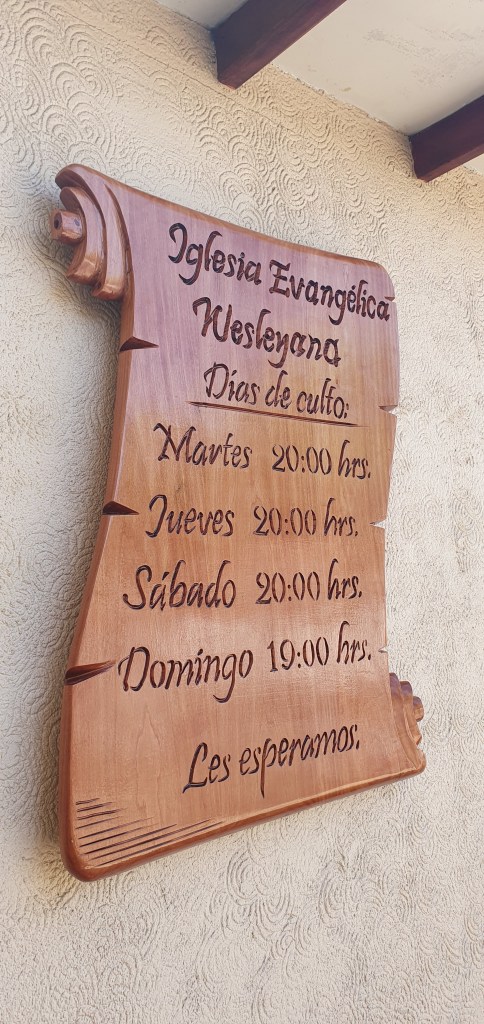 Iglesia Evangélica
Wesleyana
Días de culto:
Martes 20:00 hrs.
Jueves 20:00 hrs.
Sábado 20:00 hrs.
Domingo 19:00 hrs.
Les esperamos.